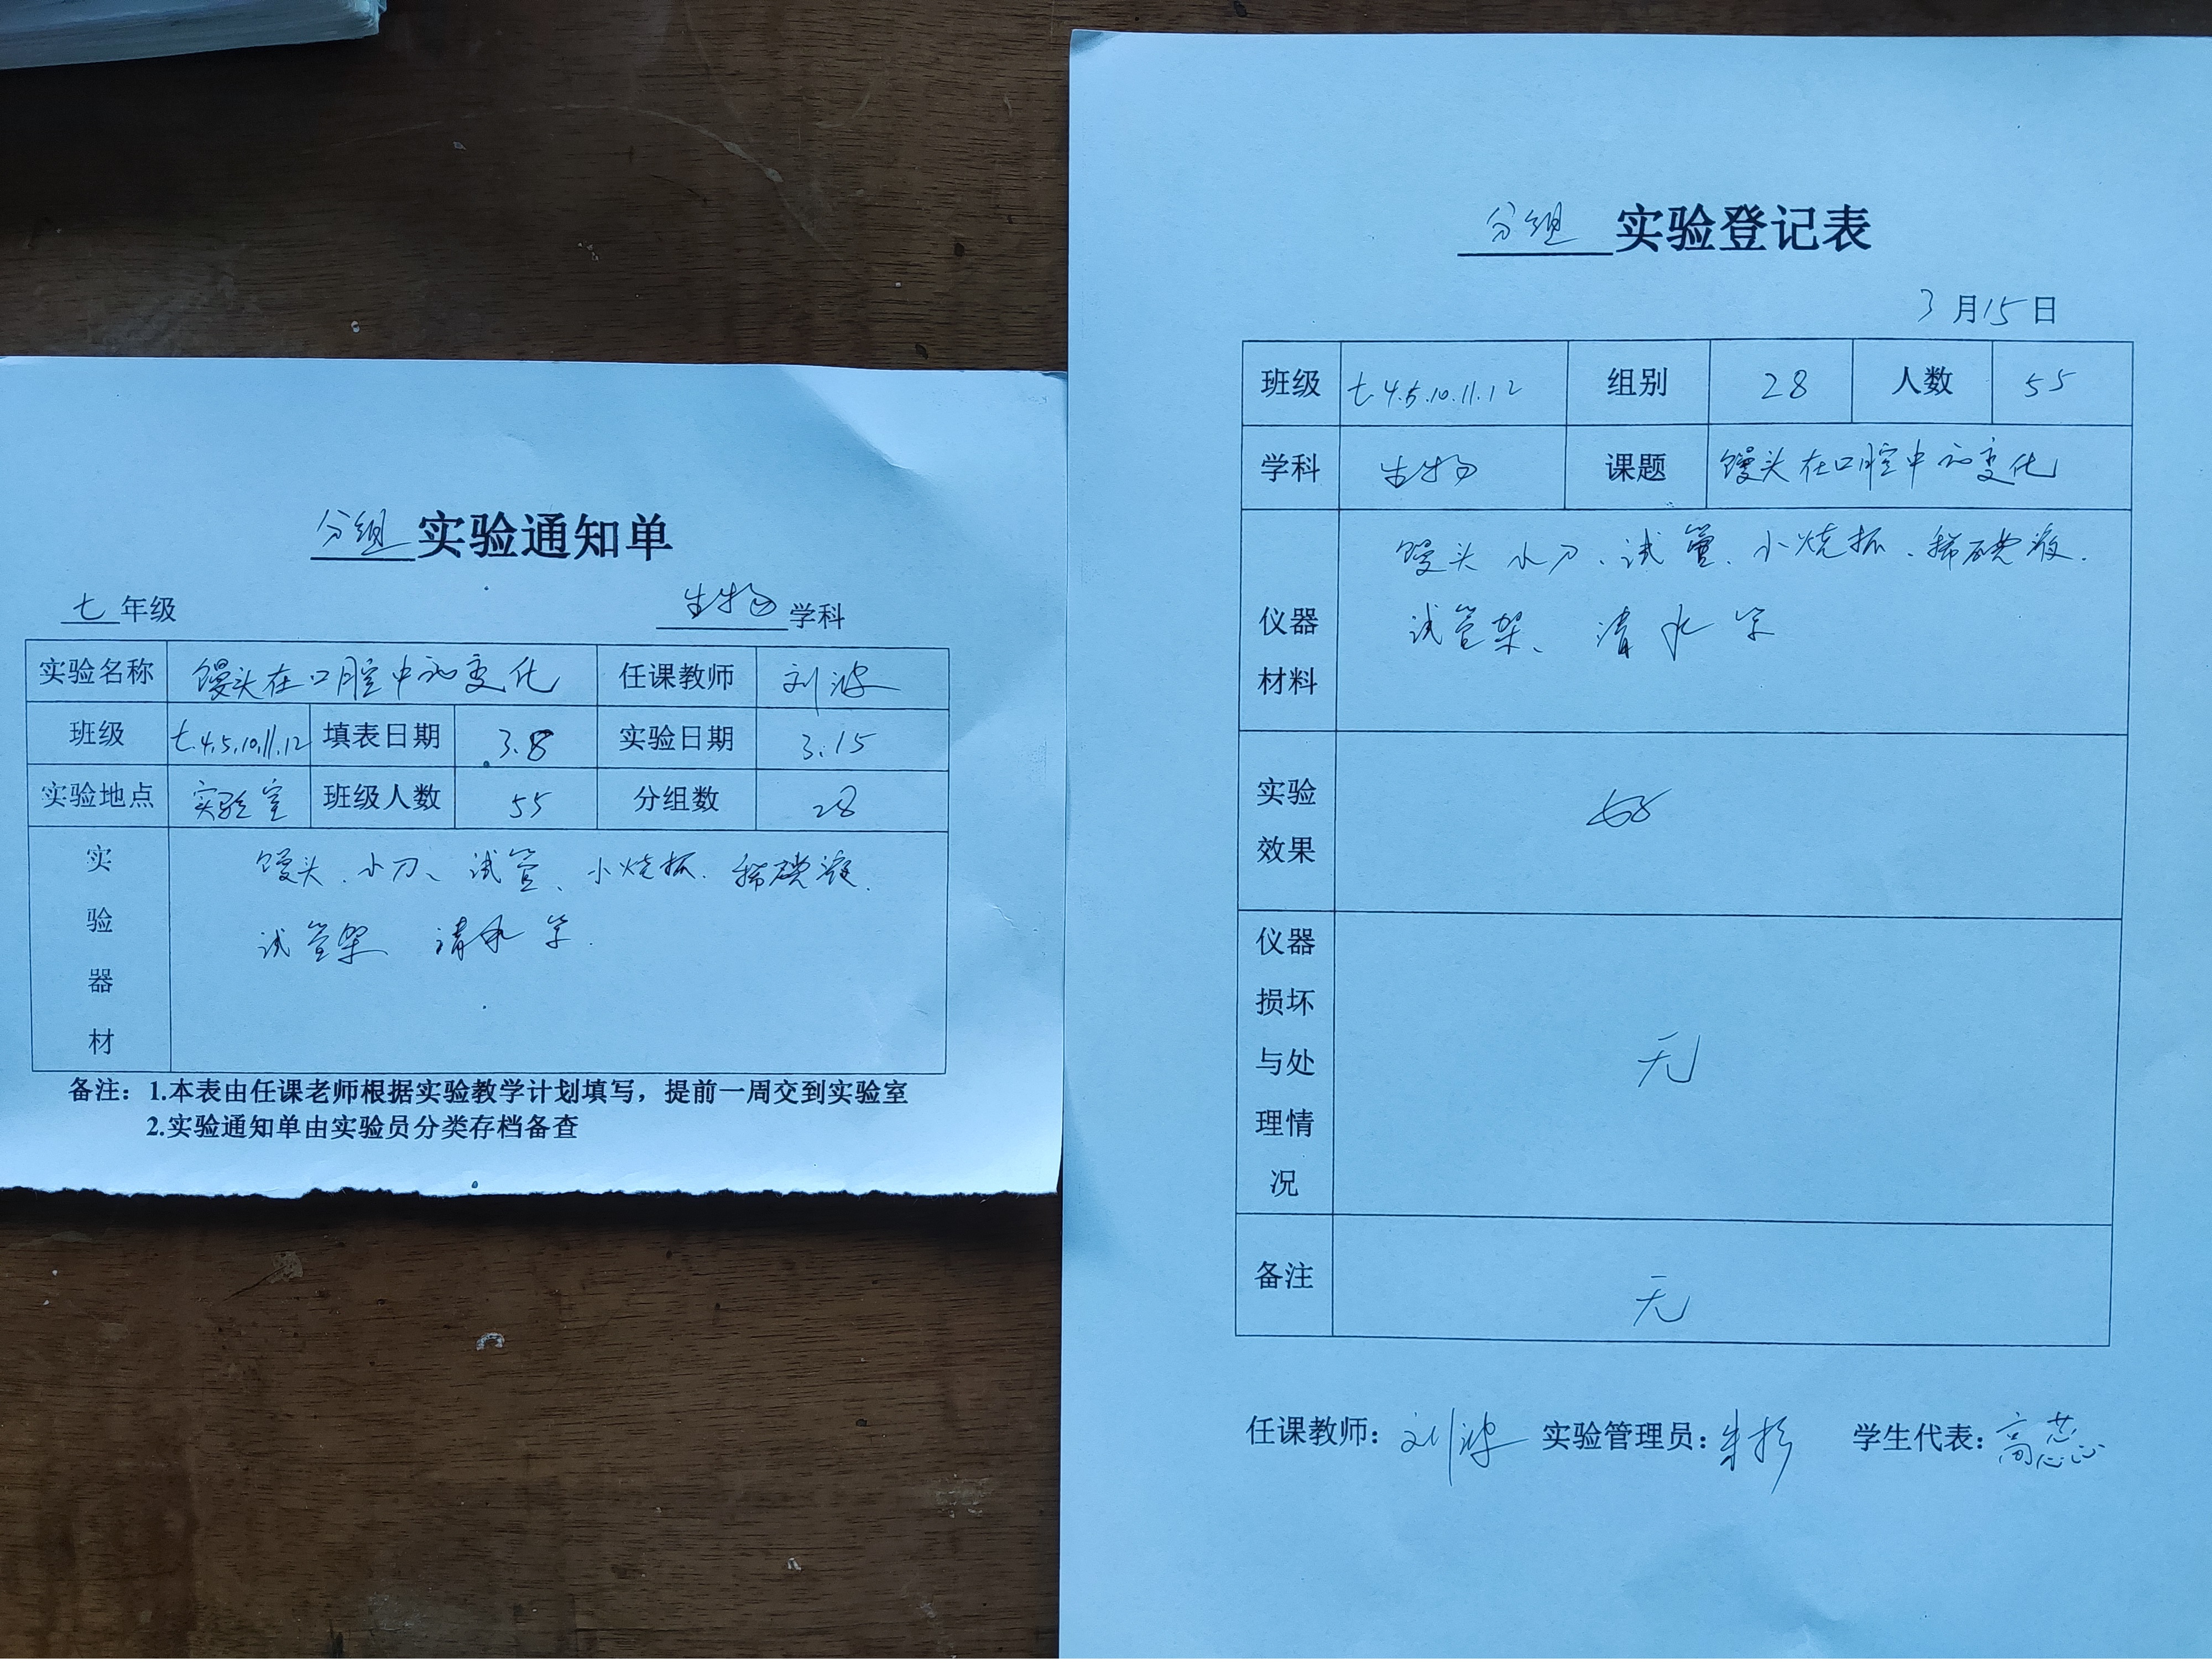 分组 实验通知单
七 年级 生物 学科
实验名称 馒头在口腔中的变化 任课教师 刘波
班级 七.4.5.10.11.12 填表日期 3.8 实验日期 3.15
实验地点 实验室 班级人数 55 分组数 28
实验器材 馒头、小刀、试管、小烧杯、稀碘液、
试管架 清水等.
备注：1.本表由任课老师根据实验教学计划填写，提前一周交到实验室
2.实验通知单由实验员分类存档备查
分组 实验登记表
3 月 15 日
班级 七.4.5.10.11.12 组别 28 人数 55
学科 生物 课题 馒头在口腔中的变化
仪器材料 馒头 小刀、试管、小烧杯、稀碘液.
试管架、清水等
实验效果 好
仪器损坏与处理情况 无
备注 无
任课教师：刘波 实验管理员：朱杉 学生代表：高蕊